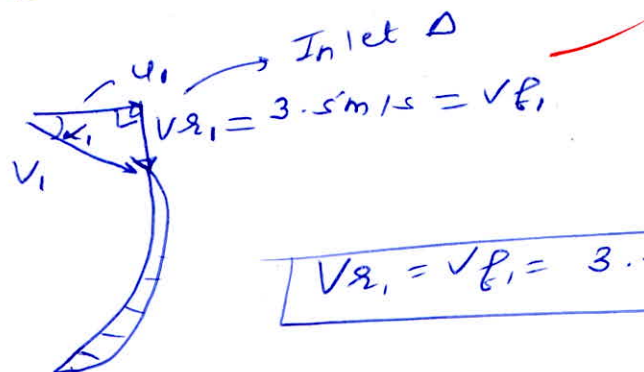 Inlet Δ
u₁
α₁
Vr₁ = 3.5 m/s = Vf₁
V₁
Vr₁ = Vf₁ = 3.